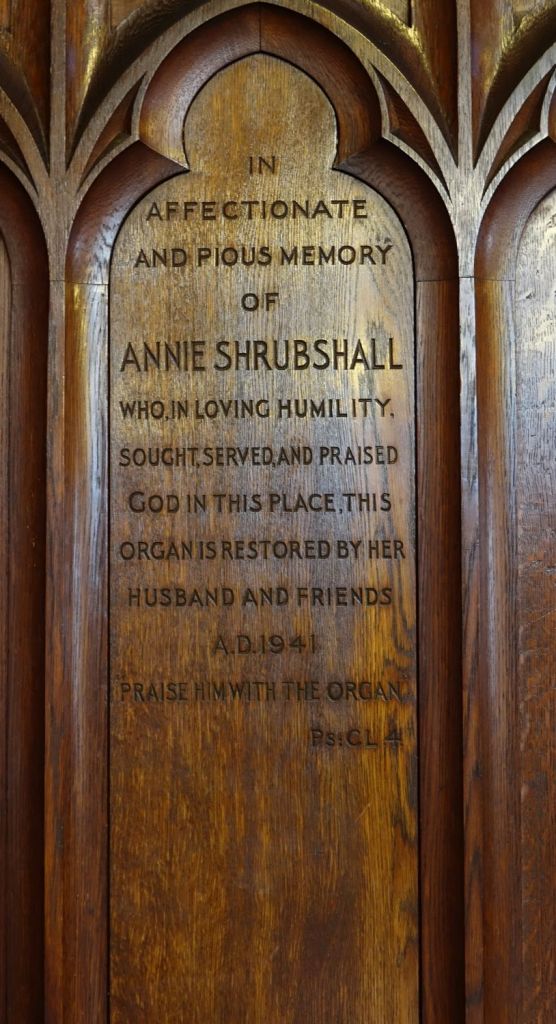 IN
AFFECTIONATE
AND PIOUS MEMORY
OF
ANNIE SHRUBSHALL
WHO, IN LOVING HUMILITY,
SOUGHT, SERVED, AND PRAISED
GOD IN THIS PLACE, THIS
ORGAN IS RESTORED BY HER
HUSBAND AND FRIENDS
A.D. 1941
"PRAISE HIM WITH THE ORGAN"
Ps: CL 4